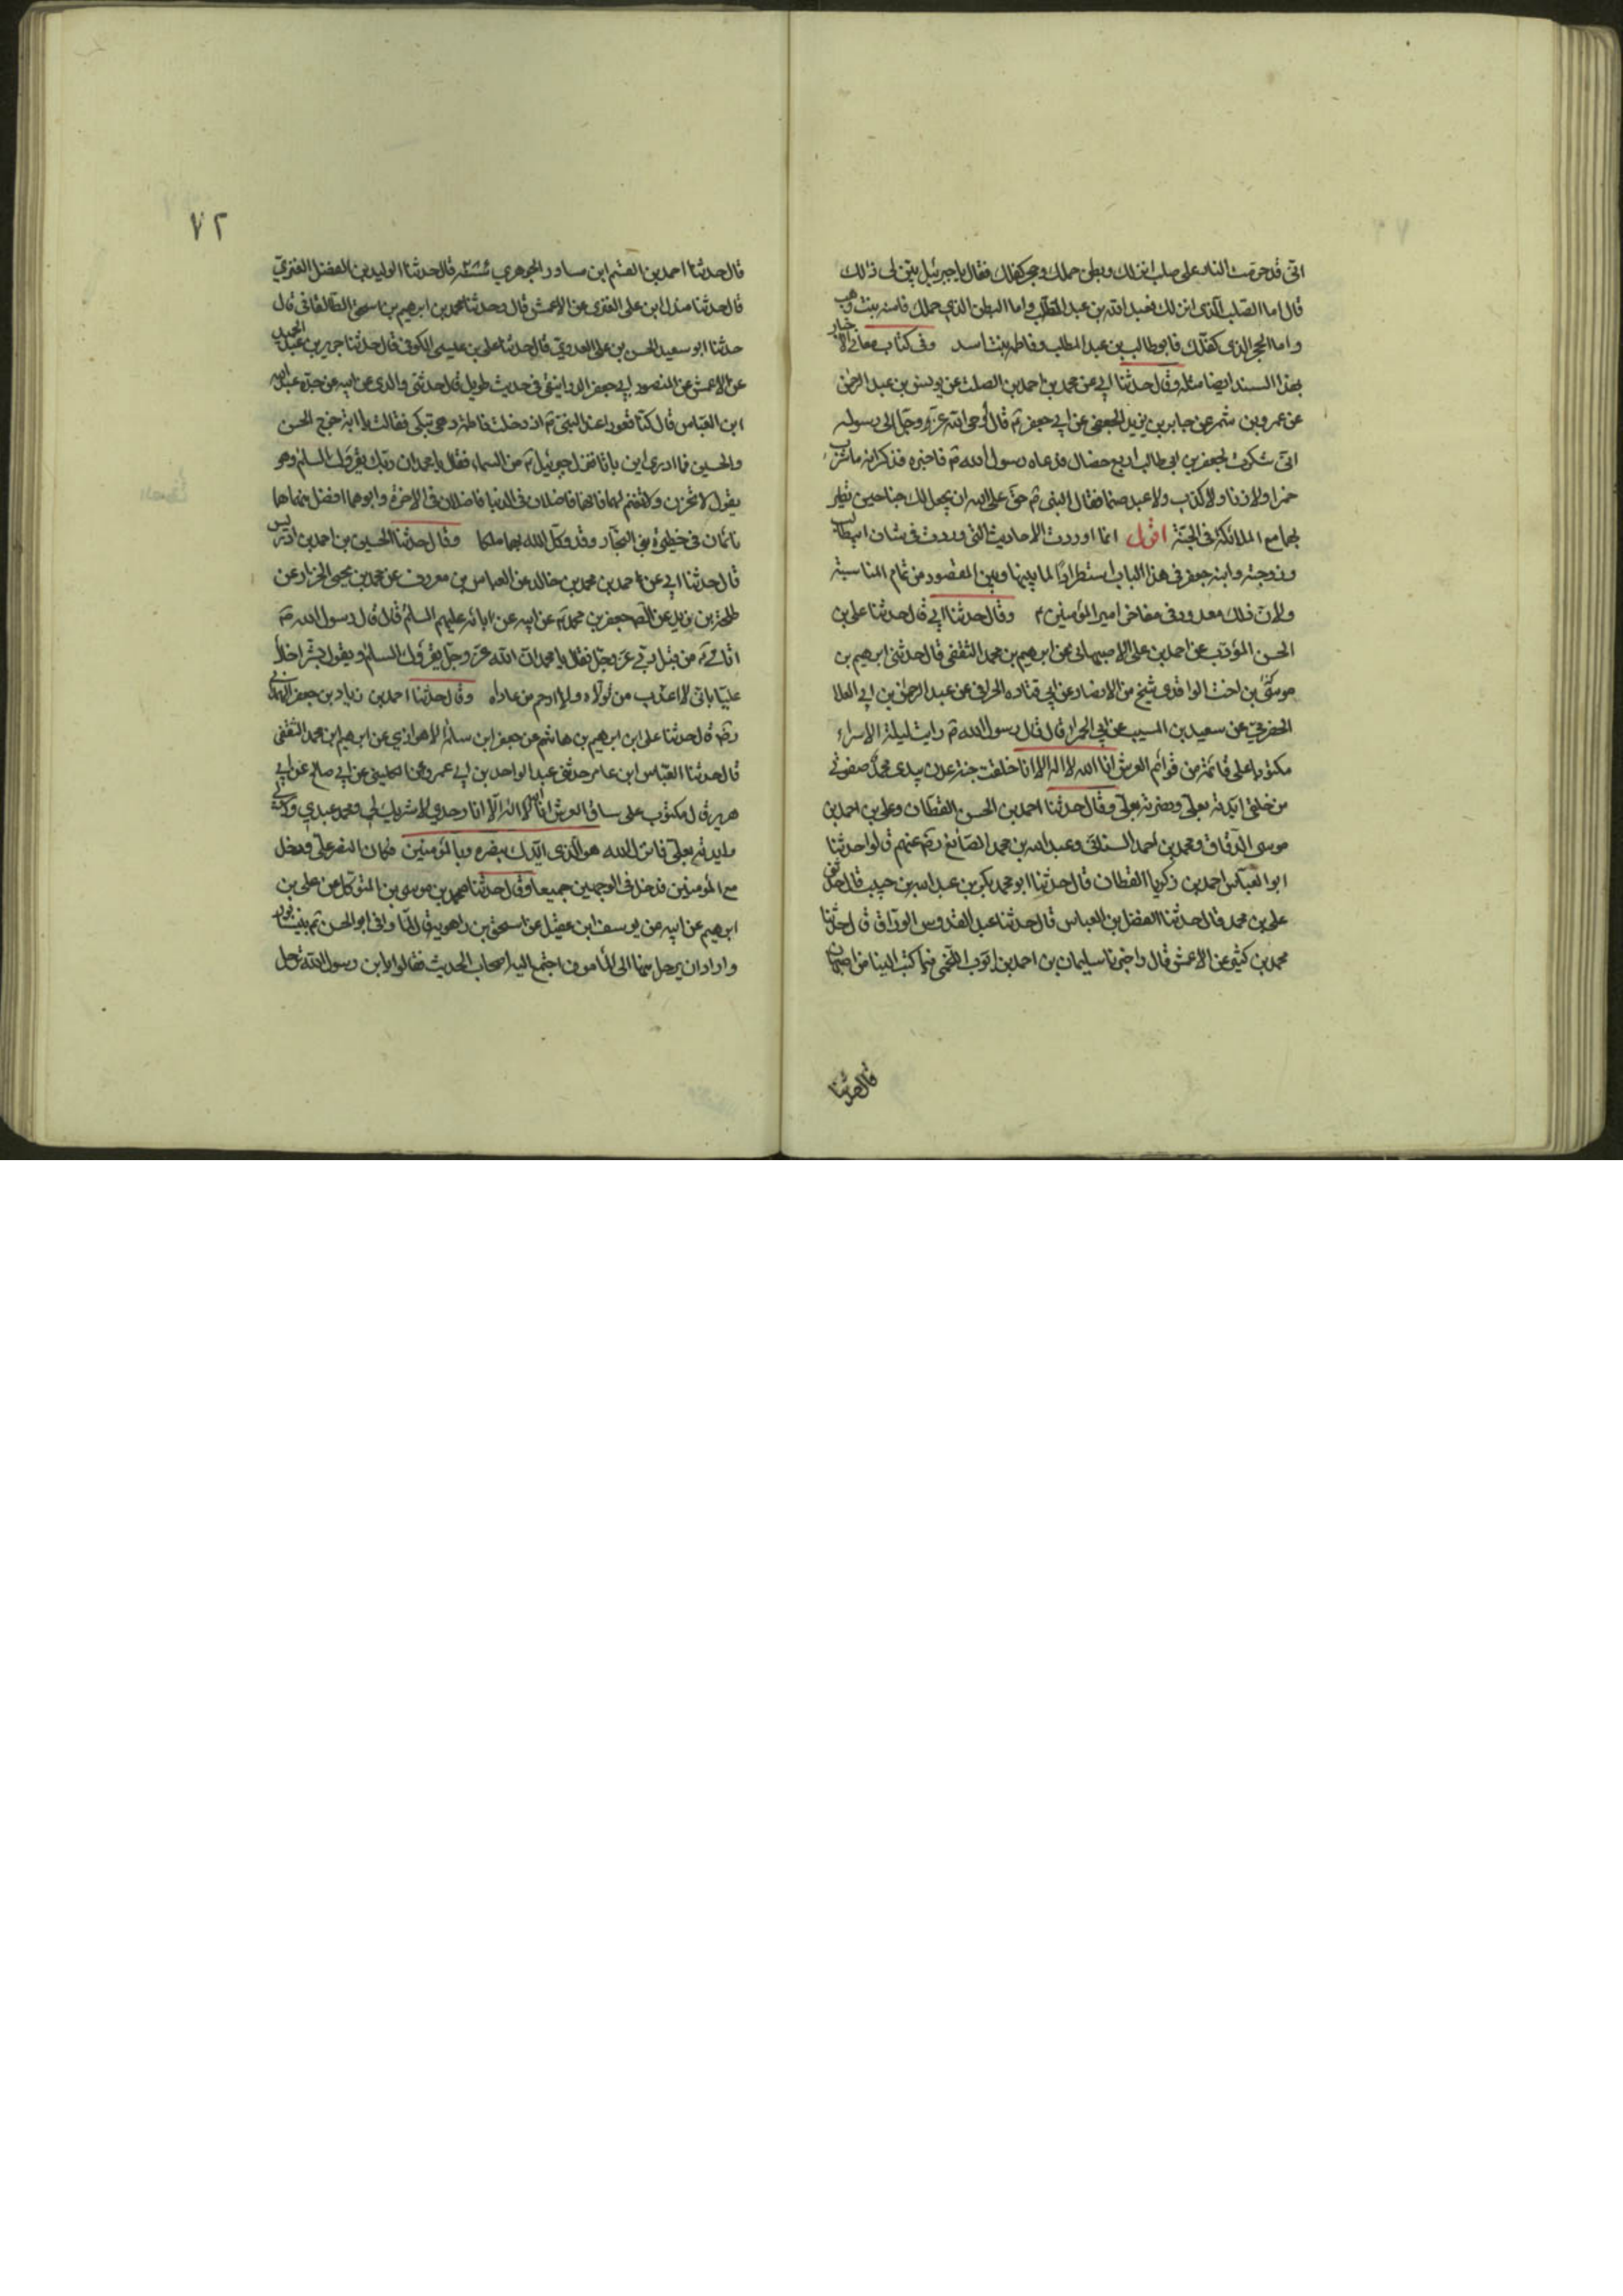 اني قد حرمت النار على صلب انزلك وبطن حملك وحجر كفلك فقال يا جبرئيل بين لي ذلك
قال اما الصلب الذي انزلك فعبد الله بن عبد المطلب واما البطن الذي حملك فامنه بنت وهب
واما الحجر الذي كفلك فابو طالب بن عبد المطلب وفاطمه بنت اسد وفي كتاب معاني الاخبار
بهذا السند ايضا مثله وقال حدثنا ابي عن محمد بن احمد بن الصلت عن يونس بن عبد الرحمن
عن عمرو بن شمر عن جابر بن يزيد الجعفي عن ابي جعفر ع قال اوحى الله عز وجل الى رسوله
اني شكرت لجعفر بن ابي طالب اربع خصال فدعاه رسول الله ص فاخبره فذكر انه ما شرب
خمرا ولا زنا ولا كذب ولا عبد صنما فقال النبي ص حق على الله ان يجعل لك جناحين تطير
بهما مع الملائكة في الجنة اقول انما اوردت الاحاديث التي وردت في شان ابيطالب
وزوجته وابنه جعفر في هذا الباب استطرادا لما بينها وبين المقصود من تمام المناسبة
ولان ذلك معدود في مفاخر امير المؤمنين ع وقال حدثنا ابي قال حدثنا علي بن
الحسن المؤدب عن احمد بن علي الاصبهاني عن ابرهيم بن محمد الثقفي قال حدثني ابرهيم بن
موسى بن اخت الواقدي شيخ من الانصار عن ابي قتاده الحراني عن عبد الرحمن بن ابي العلا
الحضرمي عن سعيد بن المسيب عن ابي الحمرا قال قال رسول الله ص رايت ليلة الاسراء
مكتوبا على قائمة من قوائم العرش انا الله لا اله الا انا خلقت جنة عدن بيدي محمد صفوتي
من خلقي ايدته بعلي ونصرته بعلي وقال حدثنا احمد بن الحسن القطان وعلي بن احمد بن
موسى الدقاق ومحمد بن احمد السناني وعبد الله بن محمد الصائغ رض عنهم قالوا حدثنا
ابو العباس احمد بن زكريا القطان قال حدثنا ابو محمد بكر بن عبد الله بن حبيب قال حدثني
علي بن محمد قال حدثنا الفضل بن العباس قال حدثنا عبد القدوس الوراق قال حدثنا
محمد بن كثير عن الاعمش قال واخبرنا سليمان بن احمد بن ايوب اللخمي فيما كتب الينا من اصبهان
قال حدثنا
٧٢
قال حدثنا احمد بن القسم ابن مساور الجوهري سنة قال حدثنا الوليد بن الفضل العنزي
قال حدثنا مندل ابن علي العنزي عن الاعمش قال وحدثنا محمد بن ابرهيم بن اسحق الطالقاني قال
حدثنا ابو سعيد الحسن بن علي العدوي قال حدثنا علي بن عيسى الكوفي قال حدثنا جرير بن عبد الحميد
عن الاعمش عن المنصور ابي جعفر الدوانيقي في حديث طويل قال حدثني والدي عن ابيه عن جده عبد الله
ابن العباس قال كنا قعودا عند النبي ص اذ دخلت فاطمة وهي تبكي فقالت يا ابة خرج الحسن
والحسين فما ادري اين باتا فنزل جبرئيل ع من السماء فقال يا محمد ان ربك يقرؤك السلم وهو
يقول لا تحزن ولا تغتم لهما فانهما فاضلان في الدنيا فاضلان في الاخرة وابوهما افضل منهما هما
نائمان في حظيرة بني النجار وقد وكل الله بهما ملكا وقال حدثنا الحسين بن احمد بن ادريس
قال حدثنا ابي عن احمد بن محمد بن خالد عن العباس بن معروف عن محمد بن يحيى الخزاز عن
طلحة بن زيد عن الصه جعفر بن محمد ع عن ابيه عن ابائه عليهم السلم قال قال رسول الله ص
اتاني من قبل ربي عز وجل فقال يا محمد ان الله عز وجل يقرؤك السلم ويقول بشر اخاك
عليا باني لا اعذب من تولاه ولا ارحم من عاداه وقال حدثنا احمد بن زياد بن جعفر الهمداني
رض قال حدثنا علي ابن ابرهيم بن هاشم عن جعفر ابن سلمة الاهوازي عن ابرهيم ابن محمد الثقفي
قال حدثنا العباس ابن عامر حدثني عبد الواحد بن ابي عمرو عن الكلبي عن ابي صالح عن ابي
هريرة قال مكتوب على ساق العرش انا الله لا اله الا انا وحدي لا شريك لي ومحمد عبدي ورسولي
وايدته بعلي فانزل الله هو الذي ايدك بنصره وبالمؤمنين فكان النصر علي ودخل
مع المؤمنين فدخل في الوجهين جميعا وقال حدثنا محمد بن موسى بن المتوكل عن علي بن
ابرهيم عن ابيه عن يوسف ابن عقيل عن اسحق بن راهويه قال لما وافى ابو الحسن ع نيشابور
واراد ان يرحل منها الى المامون اجتمع اليه اصحاب الحديث فقالوا يا ابن رسول الله ترحل